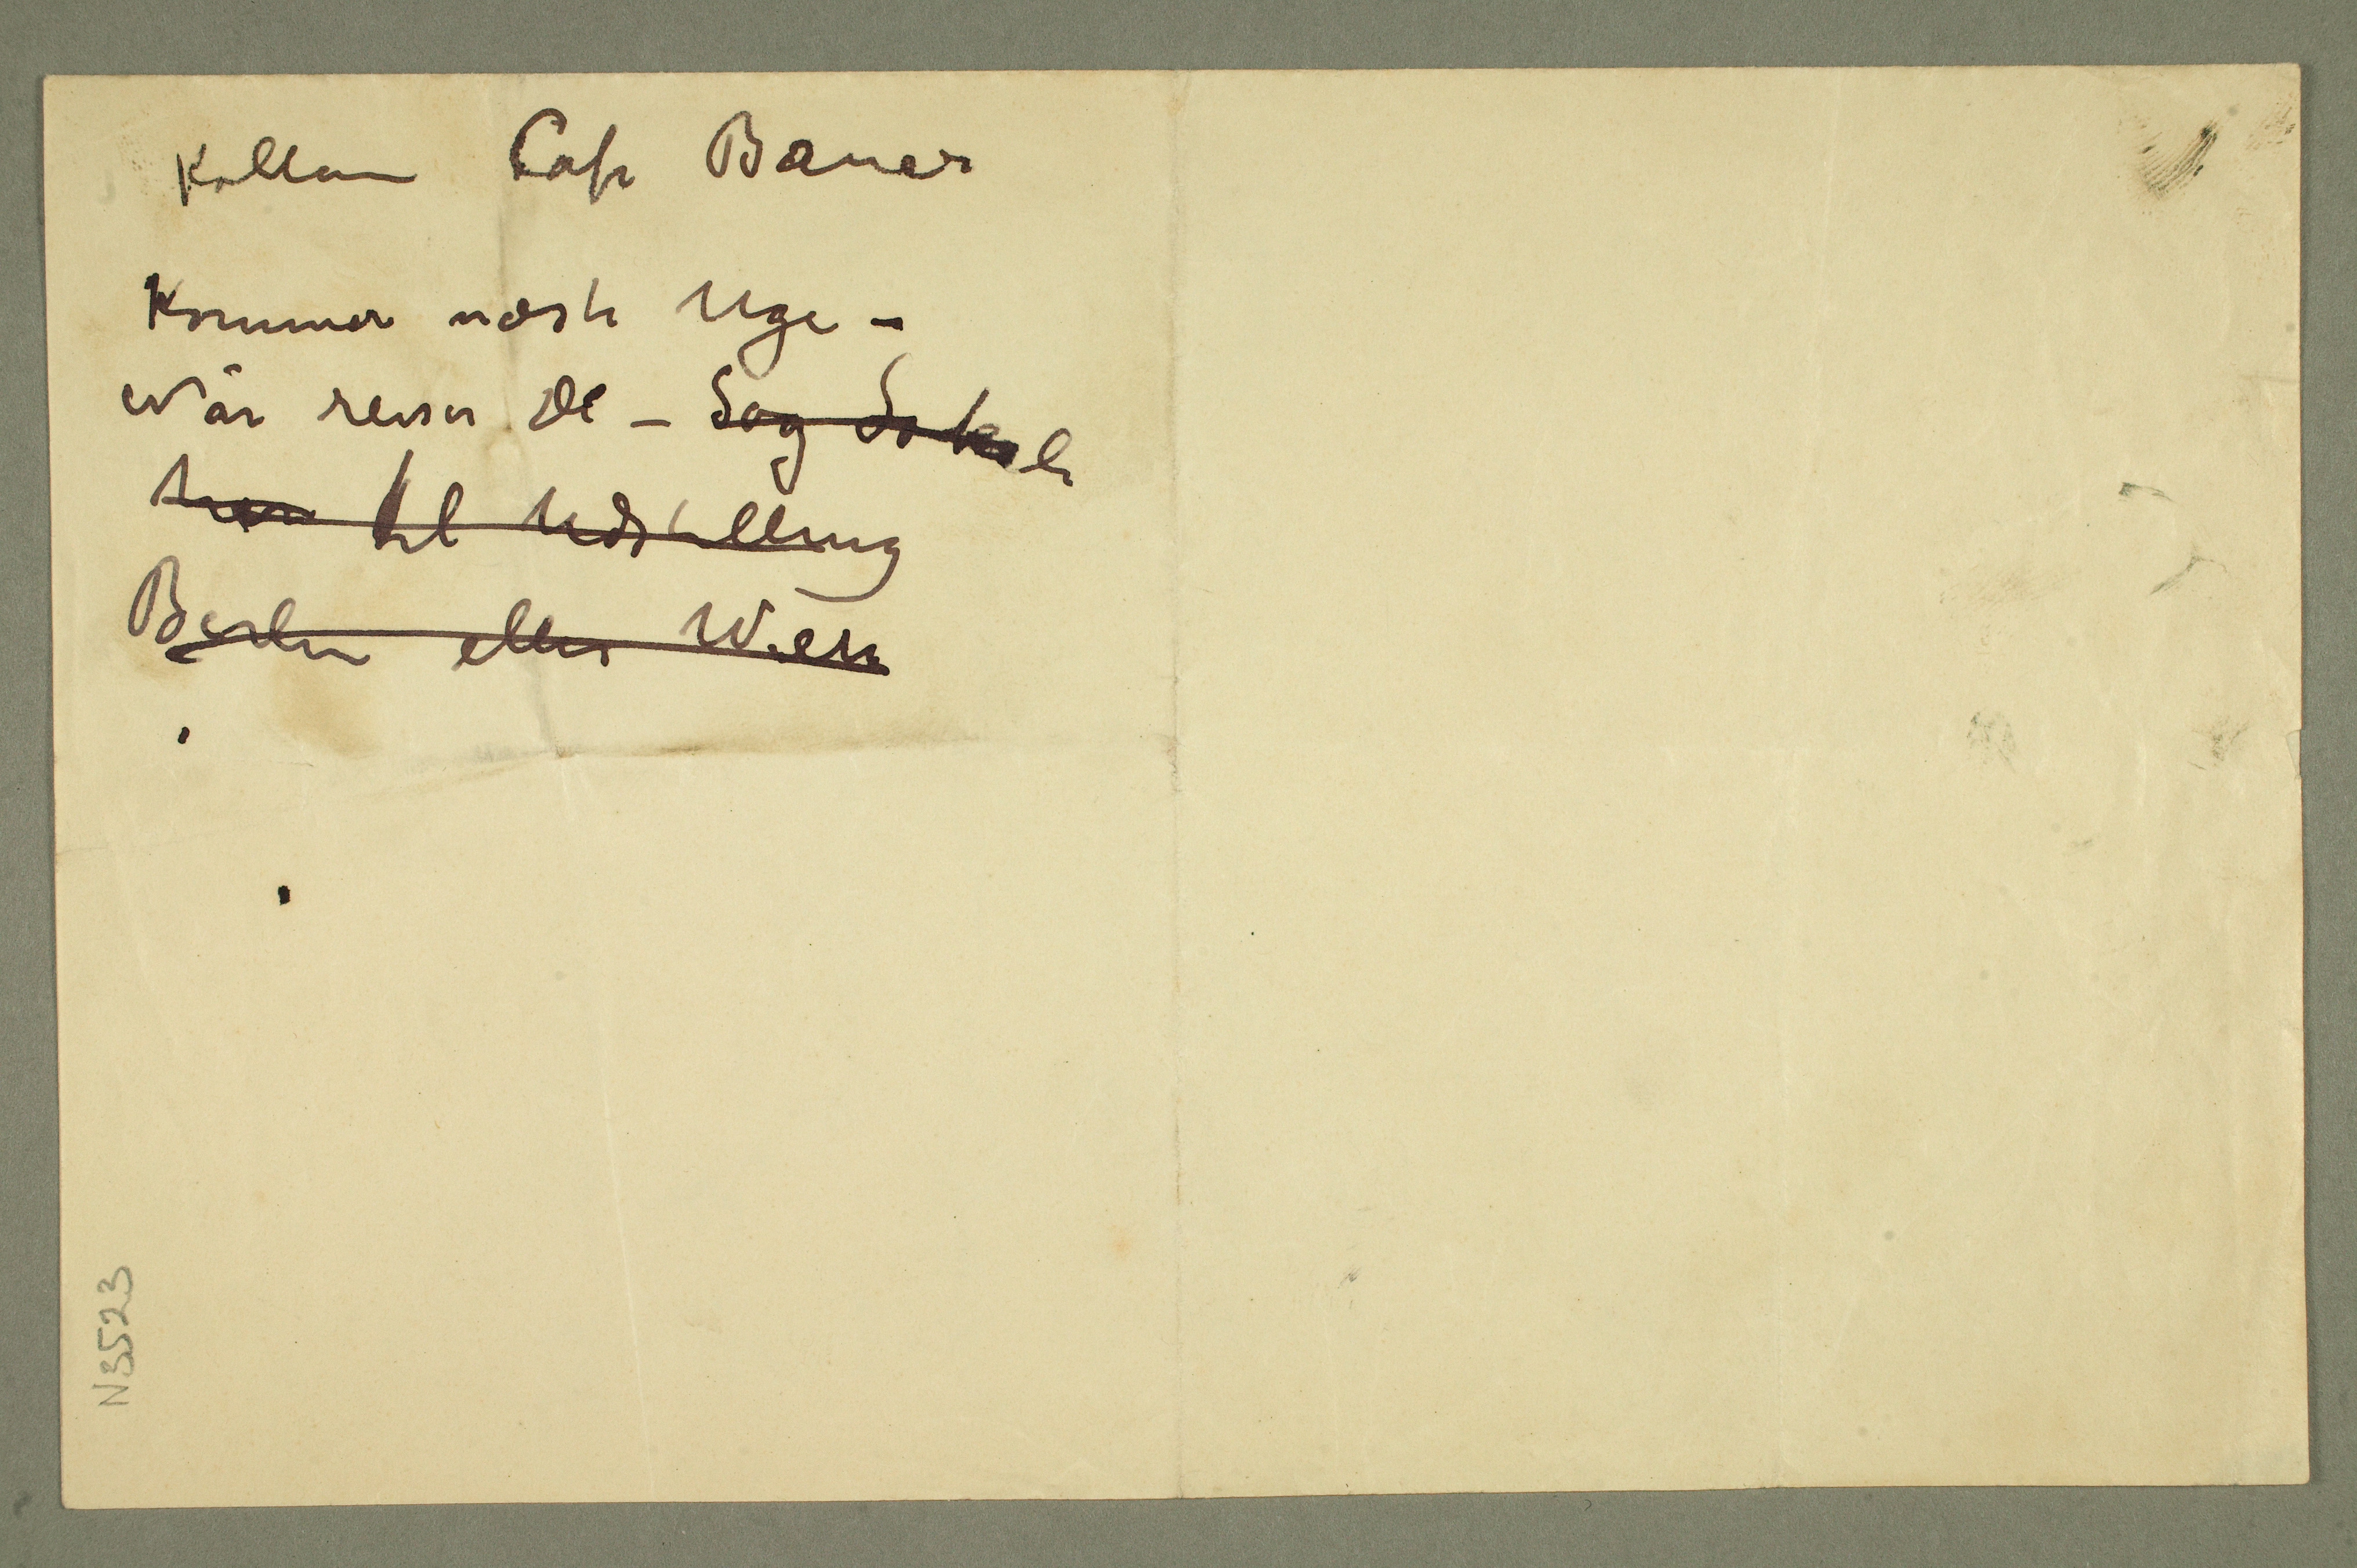 Kollmann Cafe Bauer
Kommer næste Uge –
Når reiser De – Sog
til Udstilling
Berlin eller Wien
N3523